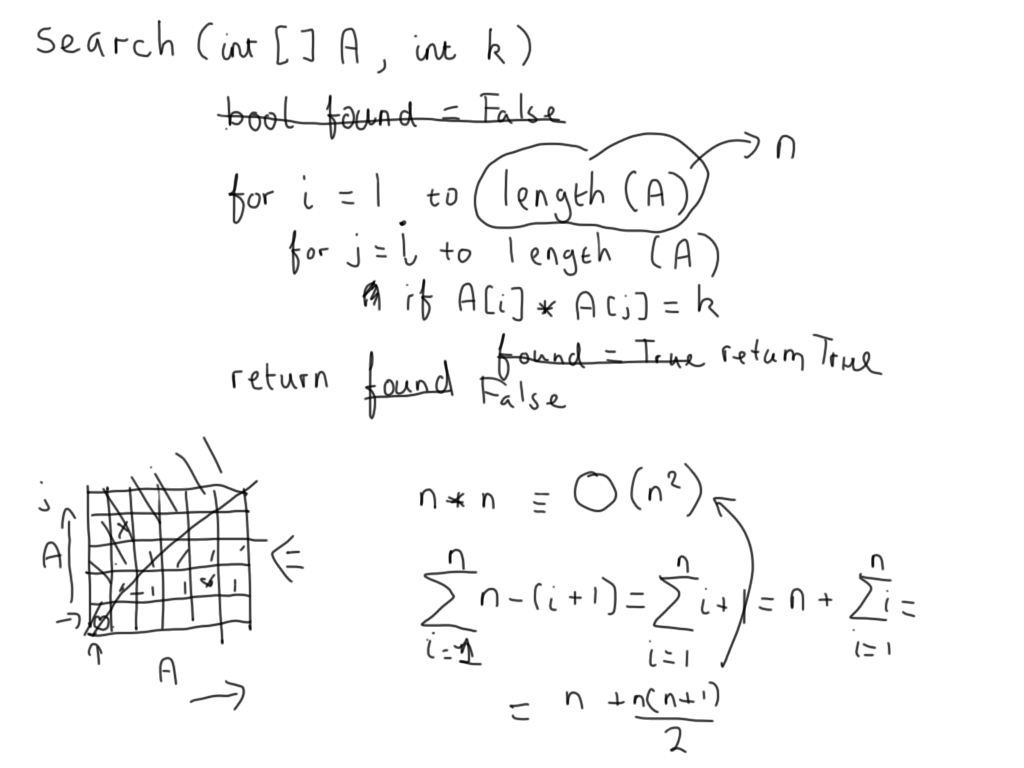 search (int [ ] A, int k)
bool found = False
for i = 1 to length (A) → n
for j = i to length (A)
if A[i] * A[j] = k
found = True return True
return found False
j
A
A
n * n ≡ O(n²)
∑_{i=1}^{n} n - (i + 1) = ∑_{i=1}^{n} i + 1 = n + ∑_{i=1}^{n} i =
= n + n(n+1)/2